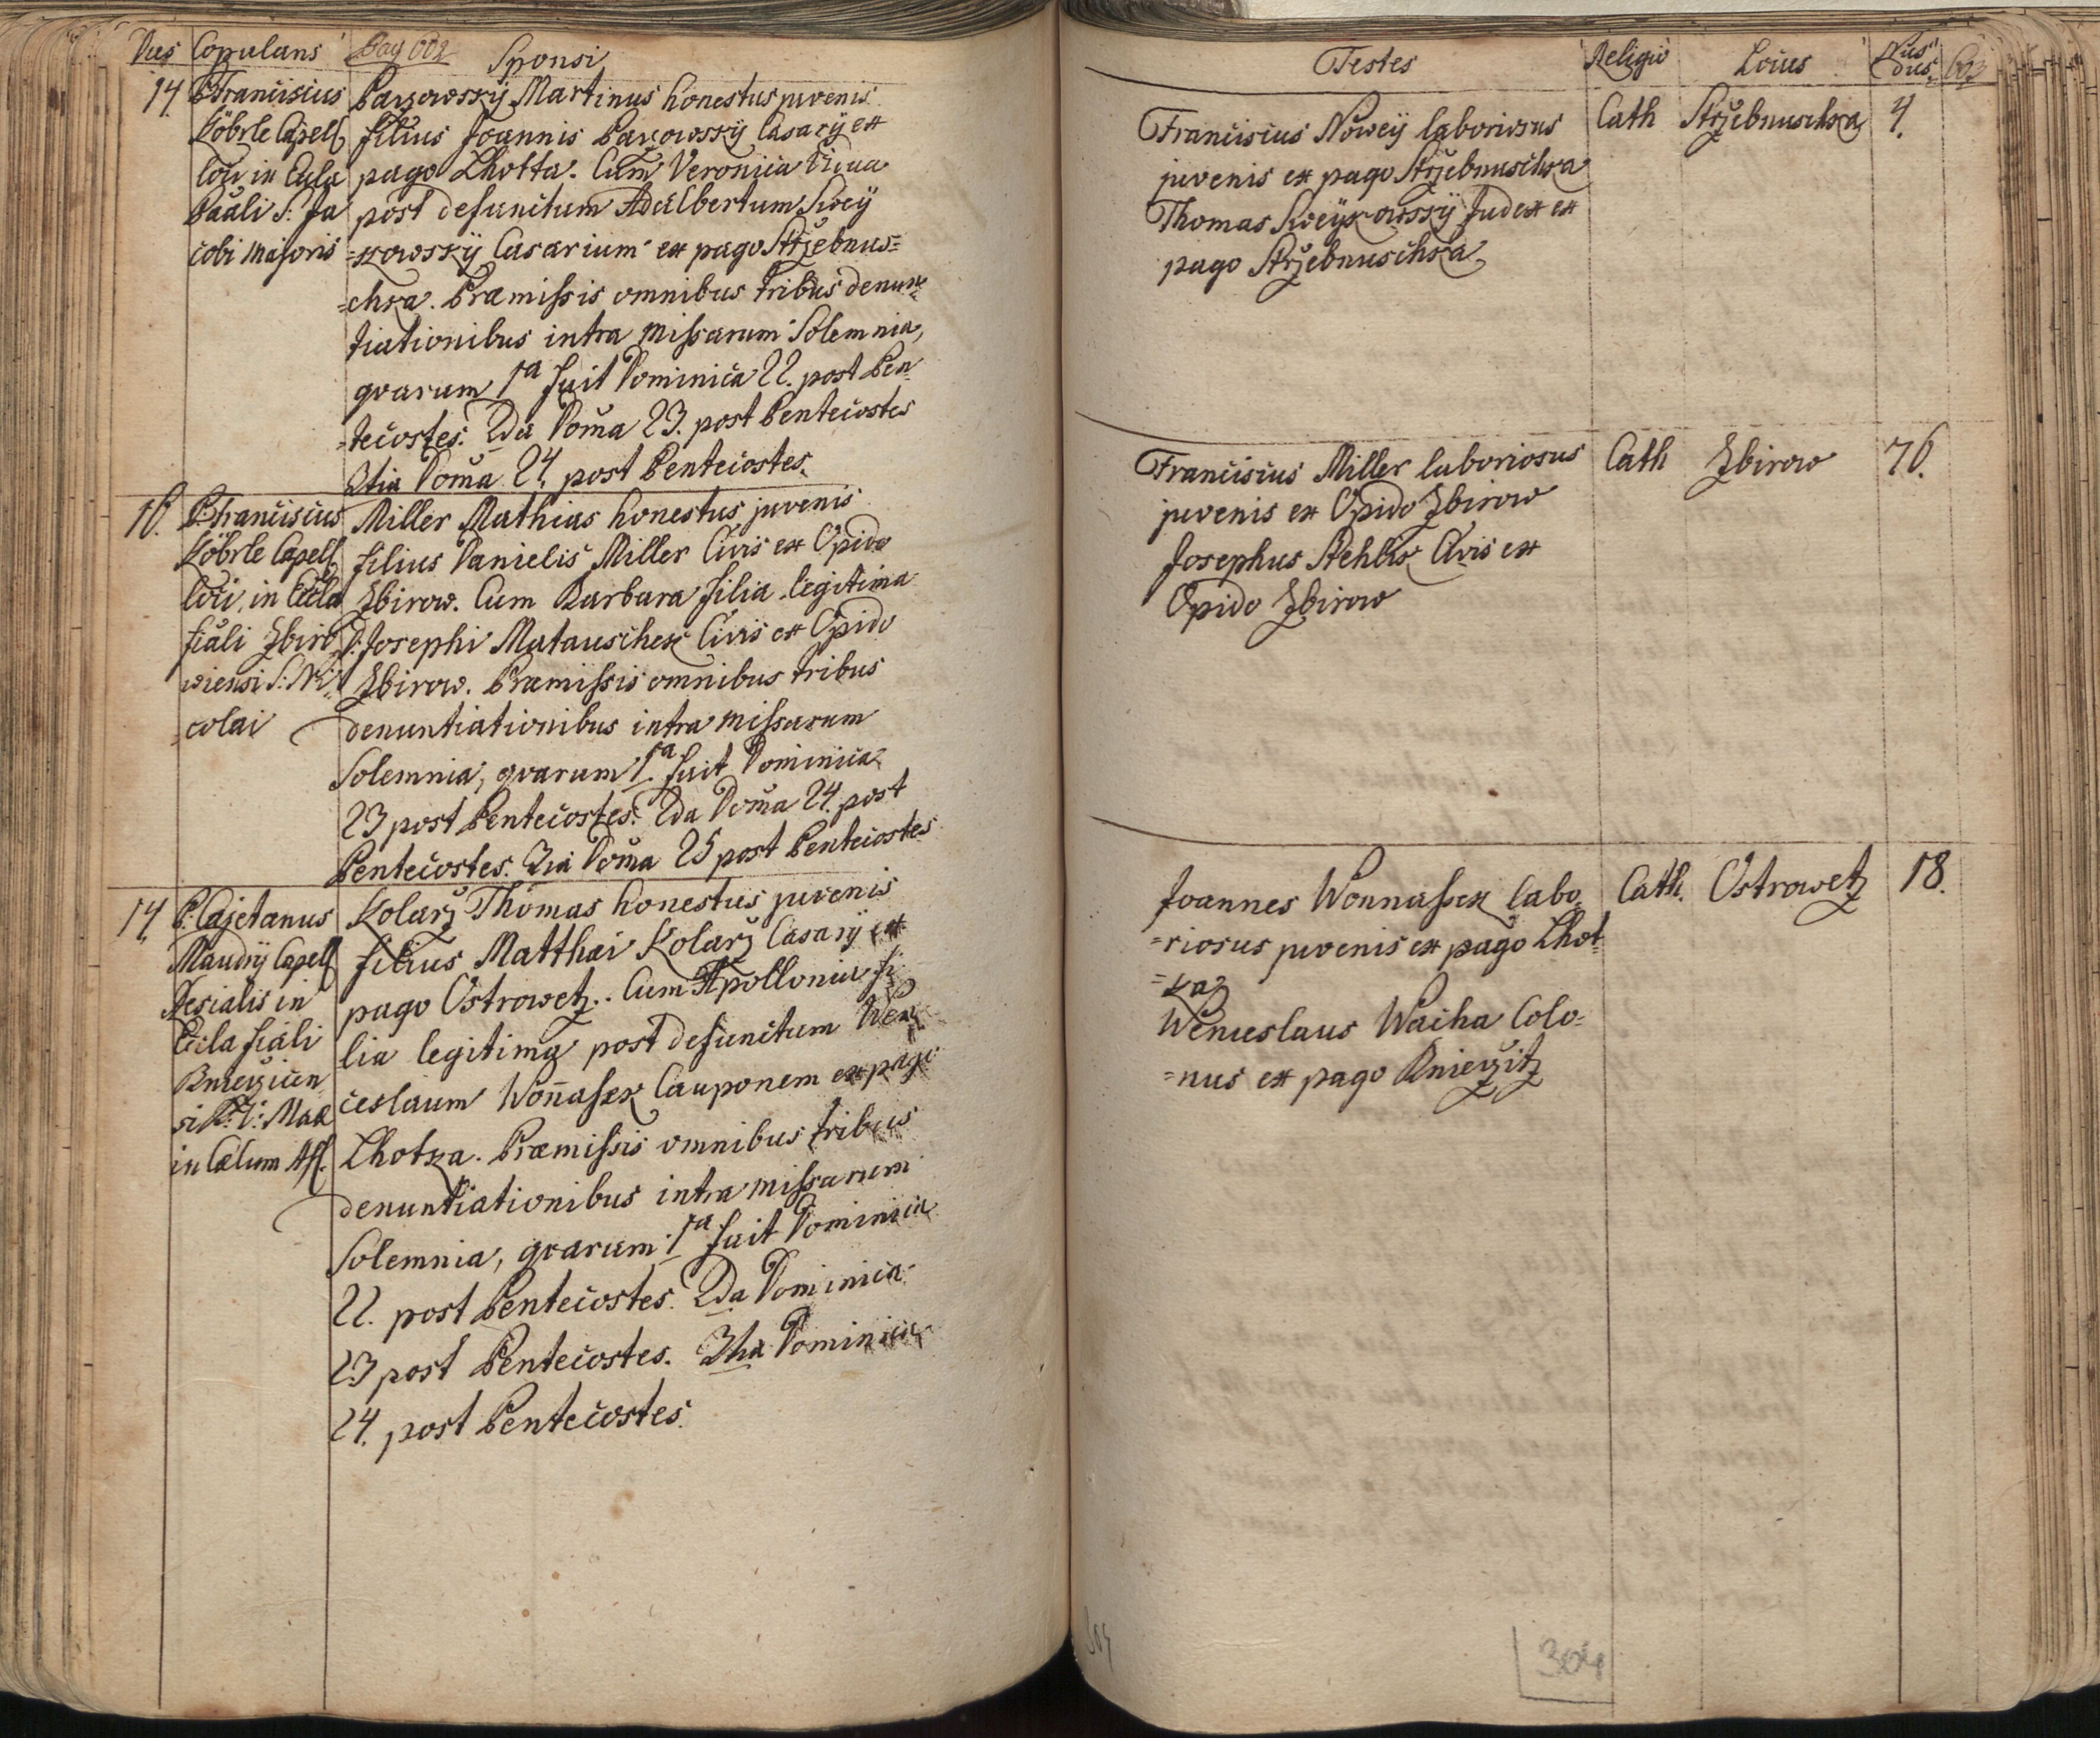 Dies Copulans Pag 602 Sponsi
14. P Franciscus
Köbrle Capell
loci in Eccla
Pââli S: Ja
cobi Majoris
Parzowsky Martinus honestus juvenis
filius Joannis Parzowsky Casarÿ ex
pago Lhotta. Cum Veronica Vidua
post defunctum Adalbertum Swey
=kowskÿ Casarium ex pago Strzebnus=
=chka. Præmissis omnibus tribus denun=
tiationibus intra Missarum Solemnia,
qvarum 1a fuit Dominica 22. post Pen
=tecostes. 2da Doma 23. post Pentecostes
3tia Doma 24. post Pentecostes.
16. P Franciscus
Köbrle Capell
loci, in Eccla
fiali Zbiro
wiensi S: Ni
=colai
Miller Mathias honestus juvenis
filius Danielis Miller Civis ex Opido
Zbirow. Cum Barbara filia legitima
D: Josephi Matauschek Civis ex Opido
Zbirow. Præmissis omnibus tribus
denuntiationibus intra Missarum
Solemnia, qvarum 1a fuit Dominica
23 post Pentecostes. 2da Doma 24. post
Pentecostes. 3ia Doma 25 post Pentecostes
14. P. Cajetanus
Maudrÿ Capell
in
Eccla fiali
Kniezicen
si B: V: Mae
in Cœlum Ass.
Kolarz Thomas honestus juvenis
filius Matthæi Kolarz Casarÿ ex
pago Ostrowetz. Cum Apollonia fi
lia legitima post defunctum Wen
ceslaum Woñassek Cauponem ex pago
Lhotka. Præmissis omnibus tribus
denuntiationibus intra Missarum
Solemnia, qvarum 1a fuit Dominica
22. post Pentecostes. 2da Dominica
23 post Pentecostes. 3tia Dominica
24. post Pentecostes.
Testes Religio Locus Nus dus 603
Franciscus Noweÿ laboriosus Cath Strzebnuschka 4.
juvenis ex pago Strzebnuschka
Thomas Sweÿkowskÿ Judex ex
pago Strzebnuschka
Franciscus Miller laboriosus Cath Zbirow 76.
juvenis ex Opido Zbirow
Josephus Civis ex
Opido Zbirow
Joannes Wonnassek labo Cath. Ostrowetz 18.
=riosus juvenis ex pago Lhot
=ka
Wenceslaus Wacha Colo=
=nus ex pago Knierzitz
304